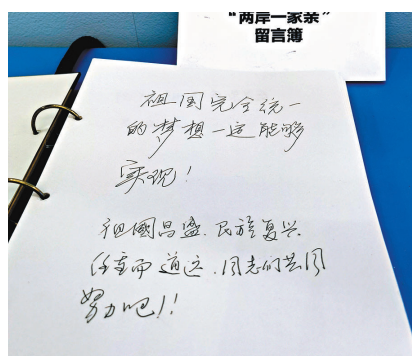 “两岸一家亲”
留言簿
祖国完全统一
的梦想一定能够
实现！
祖國昌盛.民族复兴
任重而道远.同志们共同
努力吧！！